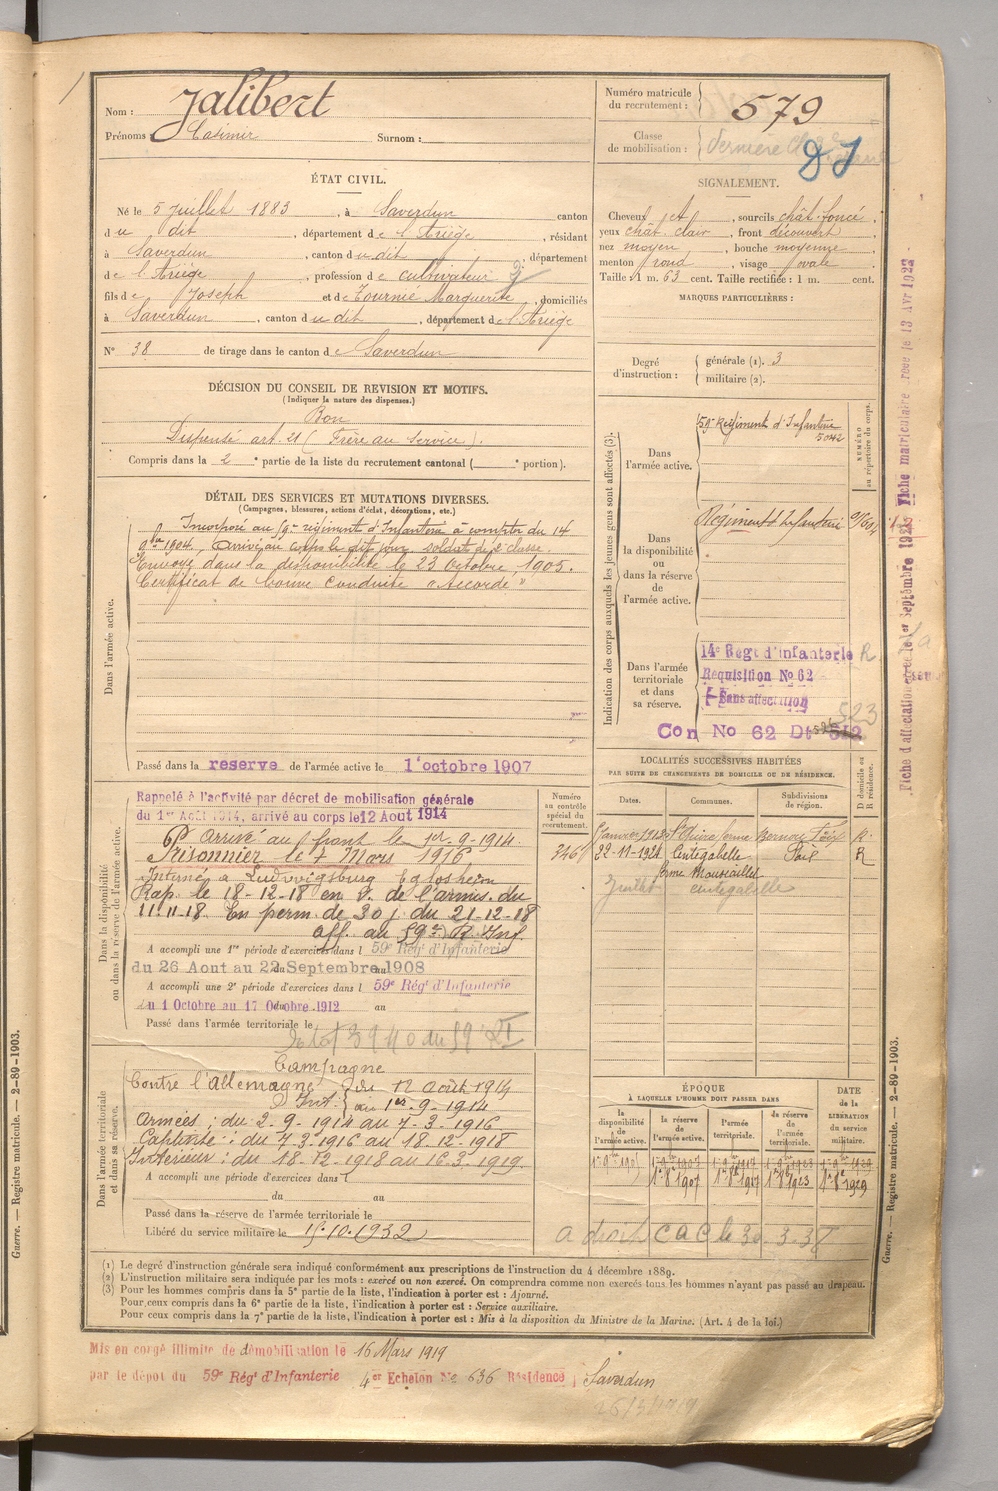 Nom : Jalibert
Prénoms : Casimir Surnom :
Numéro matricule du recrutement : 579
Classe de mobilisation : Dernière
ÉTAT CIVIL.
Né le 5 juillet 1883, à Saverdun canton
du dit, département de l'Ariège, résidant
à Saverdun, canton du dit, département
de l'Ariège, profession de cultivateur
fils de Joseph et de Tournié Marguerite, domiciliés
à Saverdun, canton du dit, département de l'Ariège
N° 38 de tirage dans le canton de Saverdun
SIGNALEMENT.
Cheveux et, sourcils chât. foncé,
yeux chât. clair, front découvert,
nez moyen, bouche moyenne
menton rond, visage ovale
Taille : 1 m. 63 cent. Taille rectifiée : 1 m. cent.
MARQUES PARTICULIÈRES :
Degré d'instruction : générale (1). 3
militaire (2).
DÉCISION DU CONSEIL DE REVISION ET MOTIFS.
(Indiquer la nature des dispenses.)
Bon
Dispensé art. 21 (Frère au Service).
Compris dans la 2e partie de la liste du recrutement cantonal ( e portion).
DÉTAIL DES SERVICES ET MUTATIONS DIVERSES.
(Campagnes, blessures, actions d'éclat, décorations, etc.)
Dans l'armée active.
Incorporé au régiment d'Infanterie à compter du 14
1904, Arrivé au corps le dit jour, soldat de 2e classe.
Envoyé dans la disponibilité le 23 Octobre 1905.
Certificat de bonne conduite "Accordé"
Passé dans la reserve de l'armée active le 1' octobre 1907
Indication des corps auxquels les jeunes gens sont affectés (3).
NUMÉRO au répertoire du corps.
Dans l'armée active.
59e Régiment d'Infanterie
5042
Dans la disponibilité ou dans la réserve de l'armée active.
Régiment d'Infanterie
Dans l'armée territoriale et dans sa réserve.
14e Régt d'infanterie R
Requisition No 62
Sans affectation
523
Con No 62 Dt 512
LOCALITÉS SUCCESSIVES HABITÉES
PAR SUITE DE CHANGEMENTS DE DOMICILE OU DE RÉSIDENCE.
D domicile ou R résidence.
Dates. Communes. Subdivisions de région.
Janvier 1913 Foix R.
22-11-1924 Cintegabelle Foix R
ferme
Juillet cintegabelle
Numéro au contrôle spécial du recrutement.
346
Dans la disponibilité ou dans la réserve de l'armée active.
Rappelé à l'activité par décret de mobilisation générale
du 1er Août 1914, arrivé au corps le 12 Aout 1914
Arrivé au front le 1er-9-1914.
Prisonnier le 7 Mars 1916
Interné à Ludwigsburg Eglosheim
Rap. le 18-12-18 en v. de l'armis. du
11-11-18. En perm. de 30 j. du 21-12-18
aff. au 59e R. Inf.
A accompli une 1re période d'exercices dans l 59e Régt d'Infanterie
du 26 Aout au 22 Septembre 1908
A accompli une 2e période d'exercices dans l 59e Régt d'Infanterie
du 1 Octobre au 17 Octobre 1912 au
Passé dans l'armée territoriale le
Dans l'armée territoriale et dans sa réserve.
Campagne
Contre l'Allemagne du 12 août 1914
Int. au 1er-9-1914
Armées : du 2-9-1914 au 7-3-1916
Captivité : du 7-3-1916 au 18-12-1918
Intérieur : du 18-12-1918 au 16-3-1919
A accompli une période d'exercices dans l
du au
Passé dans la réserve de l'armée territoriale le
Libéré du service militaire le 15-10-1932
ÉPOQUE
À LAQUELLE L'HOMME DOIT PASSER DANS
la disponibilité de l'armée active.
la réserve de l'armée active.
l'armée territoriale.
la réserve de l'armée territoriale.
DATE de la LIBÉRATION du service militaire.
1907 1917 1923 1929
a droit CAC le 30.3.38
(1) Le degré d'instruction générale sera indiqué conformément aux prescriptions de l'instruction du 4 décembre 1889.
(2) L'instruction militaire sera indiquée par les mots : exercé ou non exercé. On comprendra comme non exercés tous les hommes n'ayant pas passé au drapeau.
(3) Pour les hommes compris dans la 5e partie de la liste, l'indication à porter est : Ajourné.
Pour ceux compris dans la 6e partie de la liste, l'indication à porter est : Service auxiliaire.
Pour ceux compris dans la 7e partie de la liste, l'indication à porter est : Mis à la disposition du Ministre de la Marine. (Art. 4 de la loi.)
Mis en congé illimité de démobilisation le 16 Mars 1919
par le dépôt du 59e Régt d'Infanterie 4er Echelon No 636 Résidence Saverdun
Guerre. — Registre matricule. — 2-89-1903.
Guerre. — Registre matricule. — 2-89-1903.